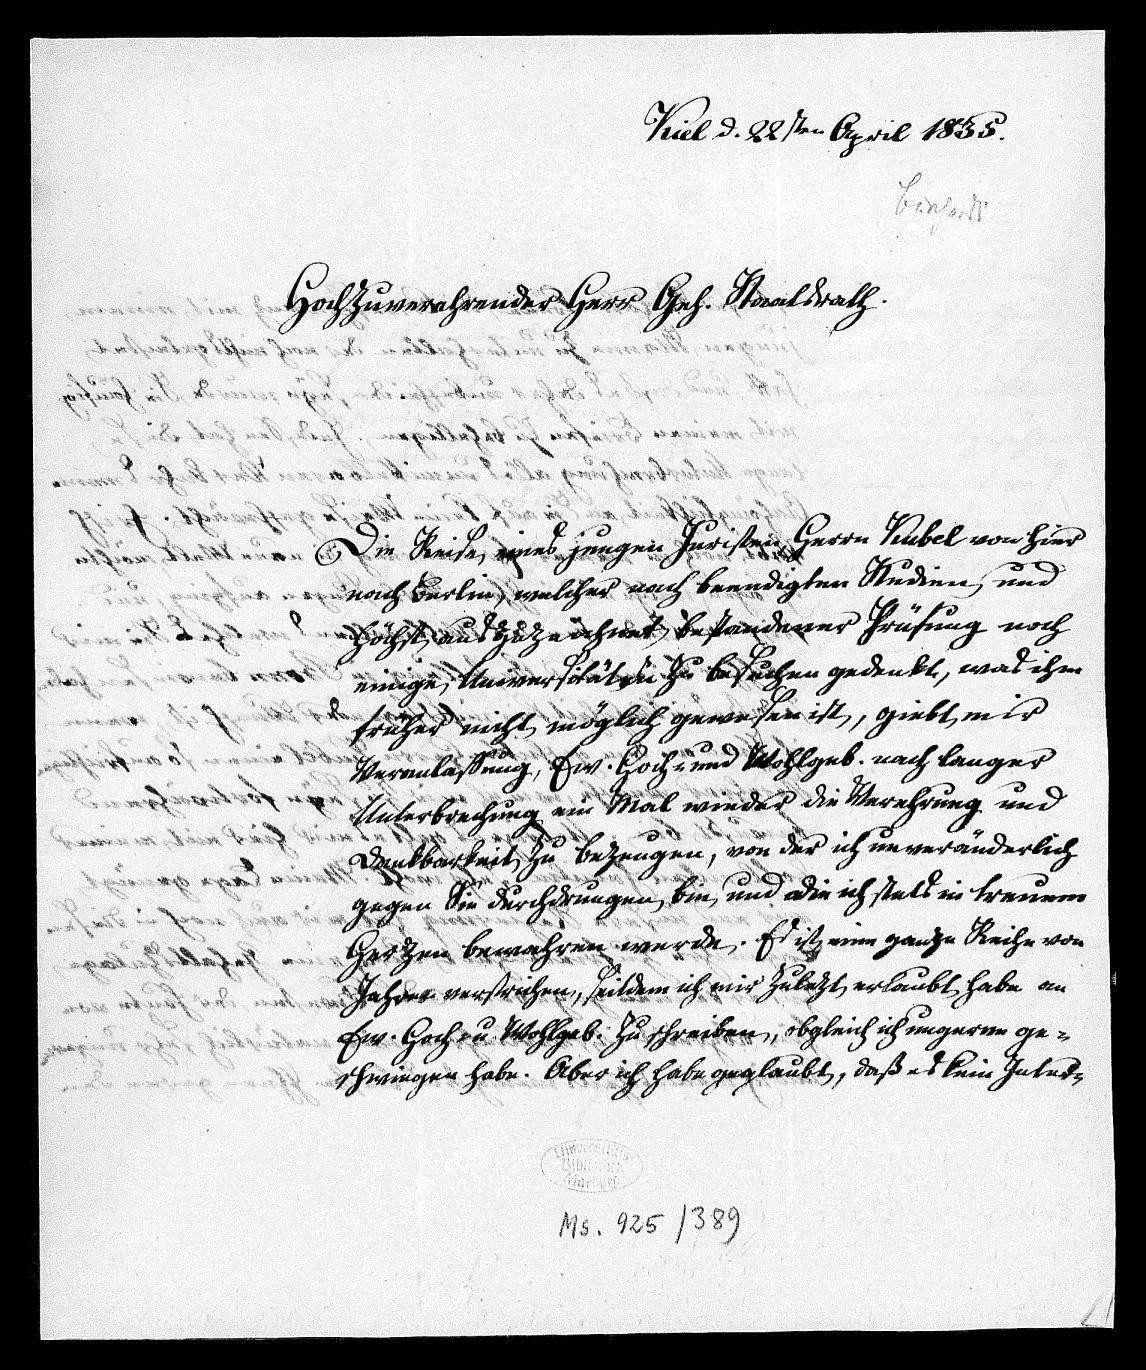 Kiel d. 22sten April 1835.
Hochzuverehrender Herr Geh. Staatsrath.
Die Reise eines jungen Juristen Herrn Kubel von hier
nach Berlin, welcher nach beendigten Studien, und
höchst ausgezeichnet bestandener Prüfung noch
einige Universitäten zu besuchen gedenkt, was ihm
früher nicht möglich gewesen ist, giebt mir
Veranlassung, Ew. Hoch- und Wohlgeb. nach langer
Unterbrechung ein Mal wieder die Verehrung und
Dankbarkeit zu bezeugen, von der ich unveränderlich
gegen Sie durchdrungen bin, und die ich stets in treuem
Herzen bewahren werde. Es ist eine ganze Reihe von
Jahren verstrichen, seitdem ich mir zuletzt erlaubt habe an
Ew. Hoch- u. Wohlgeb. zu schreiben, obgleich ich ungerne ge-
schwiegen habe. Aber ich habe geglaubt, daß es kein Inter-
Universitäts
Bibliothek
Marburg
Ms. 925/389